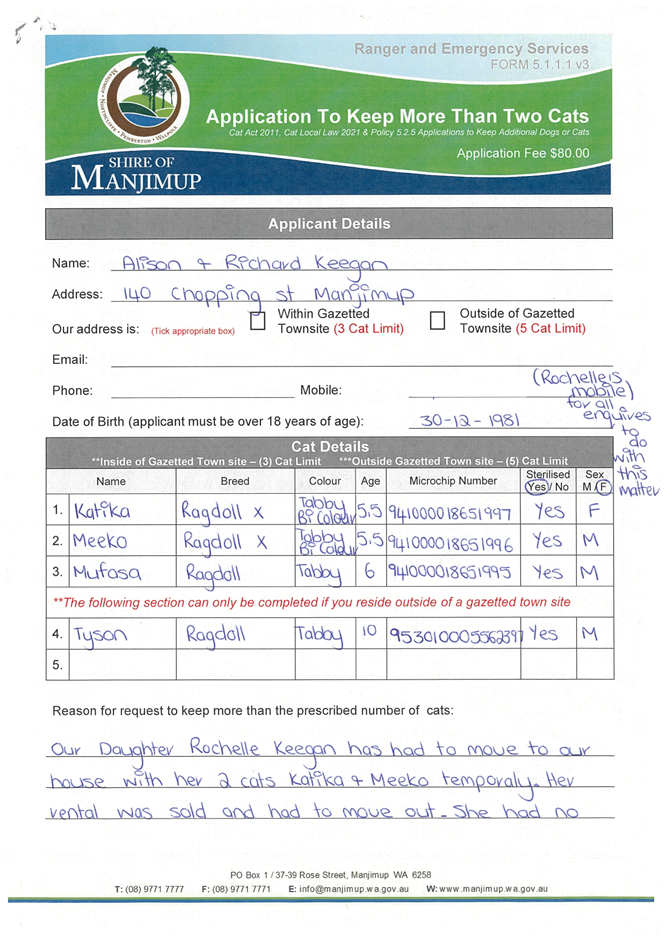 Ranger and Emergency Services
FORM 5.1.1.1 v3
Application To Keep More Than Two Cats
Cat Act 2011, Cat Local Law 2021 & Policy 5.2.5 Applications to Keep Additional Dogs or Cats
Application Fee $80.00
MANJIMUP • NORTHCLIFFE • PEMBERTON • WALPOLE
SHIRE OF
MANJIMUP
Applicant Details
Name: Alison + Richard Keegan
Address: 140 Chopping st Manjimup
Our address is: (Tick appropriate box) Within Gazetted Townsite (3 Cat Limit) Outside of Gazetted Townsite (5 Cat Limit)
Email:
Phone: Mobile:
(Rochelle's
mobile)
for all
enquires
to
do
with
this
matter
Date of Birth (applicant must be over 18 years of age): 30-12-1981
Cat Details
**Inside of Gazetted Town site – (3) Cat Limit ***Outside Gazetted Town site – (5) Cat Limit
Name Breed Colour Age Microchip Number Sterilised Yes / No Sex M / F
1. Katika Ragdoll X Tabby Bi Colour 5.5 941000018651997 Yes F
2. Meeko Ragdoll X Tabby Bi Colour 5.5 941000018651996 Yes M
3. Mufasa Ragdoll Tabby 6 941000018651995 Yes M
**The following section can only be completed if you reside outside of a gazetted town site
4. Tyson Ragdoll Tabby 10 953010005562397 Yes M
5.
Reason for request to keep more than the prescribed number of cats:
Our Daughter Rochelle Keegan has had to move to our
house with her 2 cats Katika + Meeko temporaly. Her
rental was sold and had to move out. She had no
PO Box 1 / 37-39 Rose Street, Manjimup WA 6258
T: (08) 9771 7777 F: (08) 9771 7771 E: info@manjimup.wa.gov.au W: www.manjimup.wa.gov.au